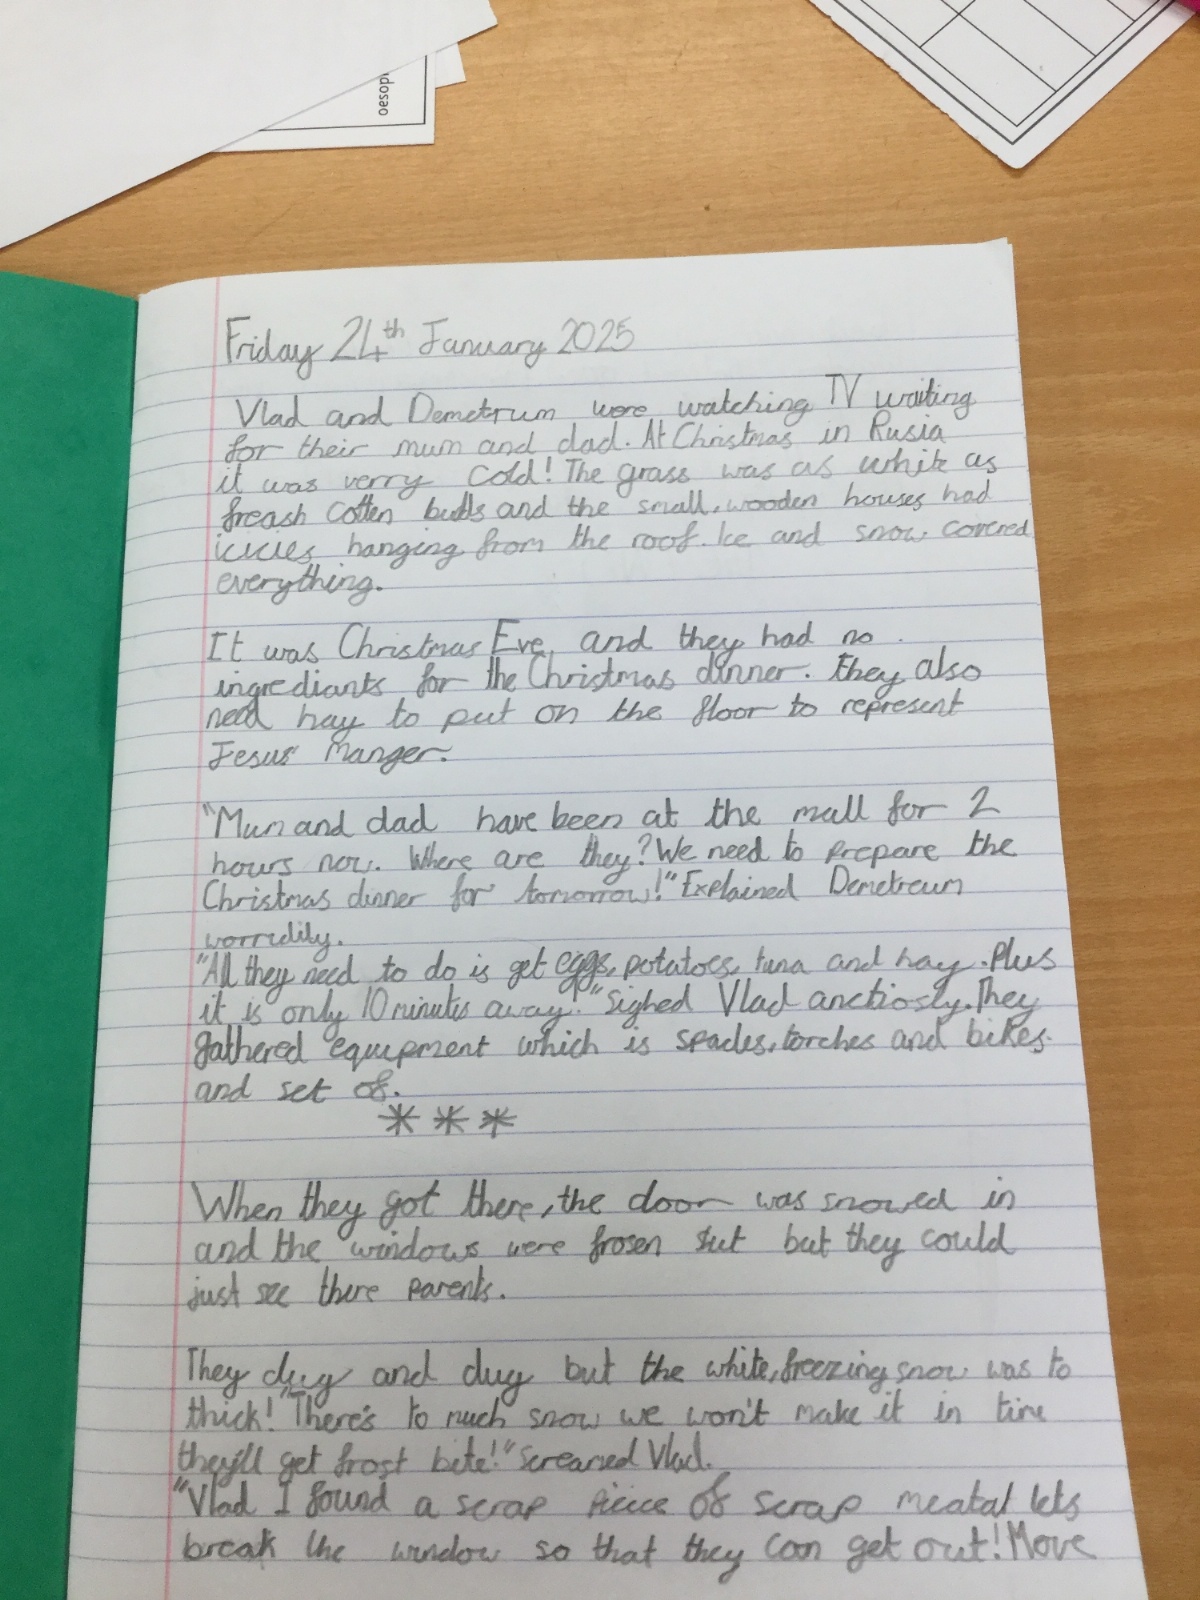 oesop
Friday 24th January 2025
Vlad and Demetrum were watching TV waiting
for their mum and dad. At Christmas in Rusia
it was verry cold! The grass was as white as
freash cotten budds and the small, wooden houses had
icicles hanging from the roof. Ice and snow covered
everything.
It was Christmas Eve, and they had no
ingrediants for the Christmas dinner. They also
need hay to put on the floor to represent
Jesus' Manger.
"Mum and dad have been at the mall for 2
hours now. Where are they? We need to prepare the
Christmas dinner for tomorrow!" Explained Demetreum
worridily.
"All they need to do is get eggs, potatoes, tuna and hay. Plus
it is only 10 minutes away." Sighed Vlad anctiosly. They
gathered equipment which is spades, torches and bikes.
and set of.
***
When they got there, the door was snowed in
and the windows were frosen sut but they could
just see there parents.
They dug and dug but the white, freezing snow was to
thick! "There's to much snow we won't make it in time
they'll get frost bite!" Screamed Vlad.
"Vlad I found a scrap piece of scrap meatal lets
break the window so that they can get out! Move